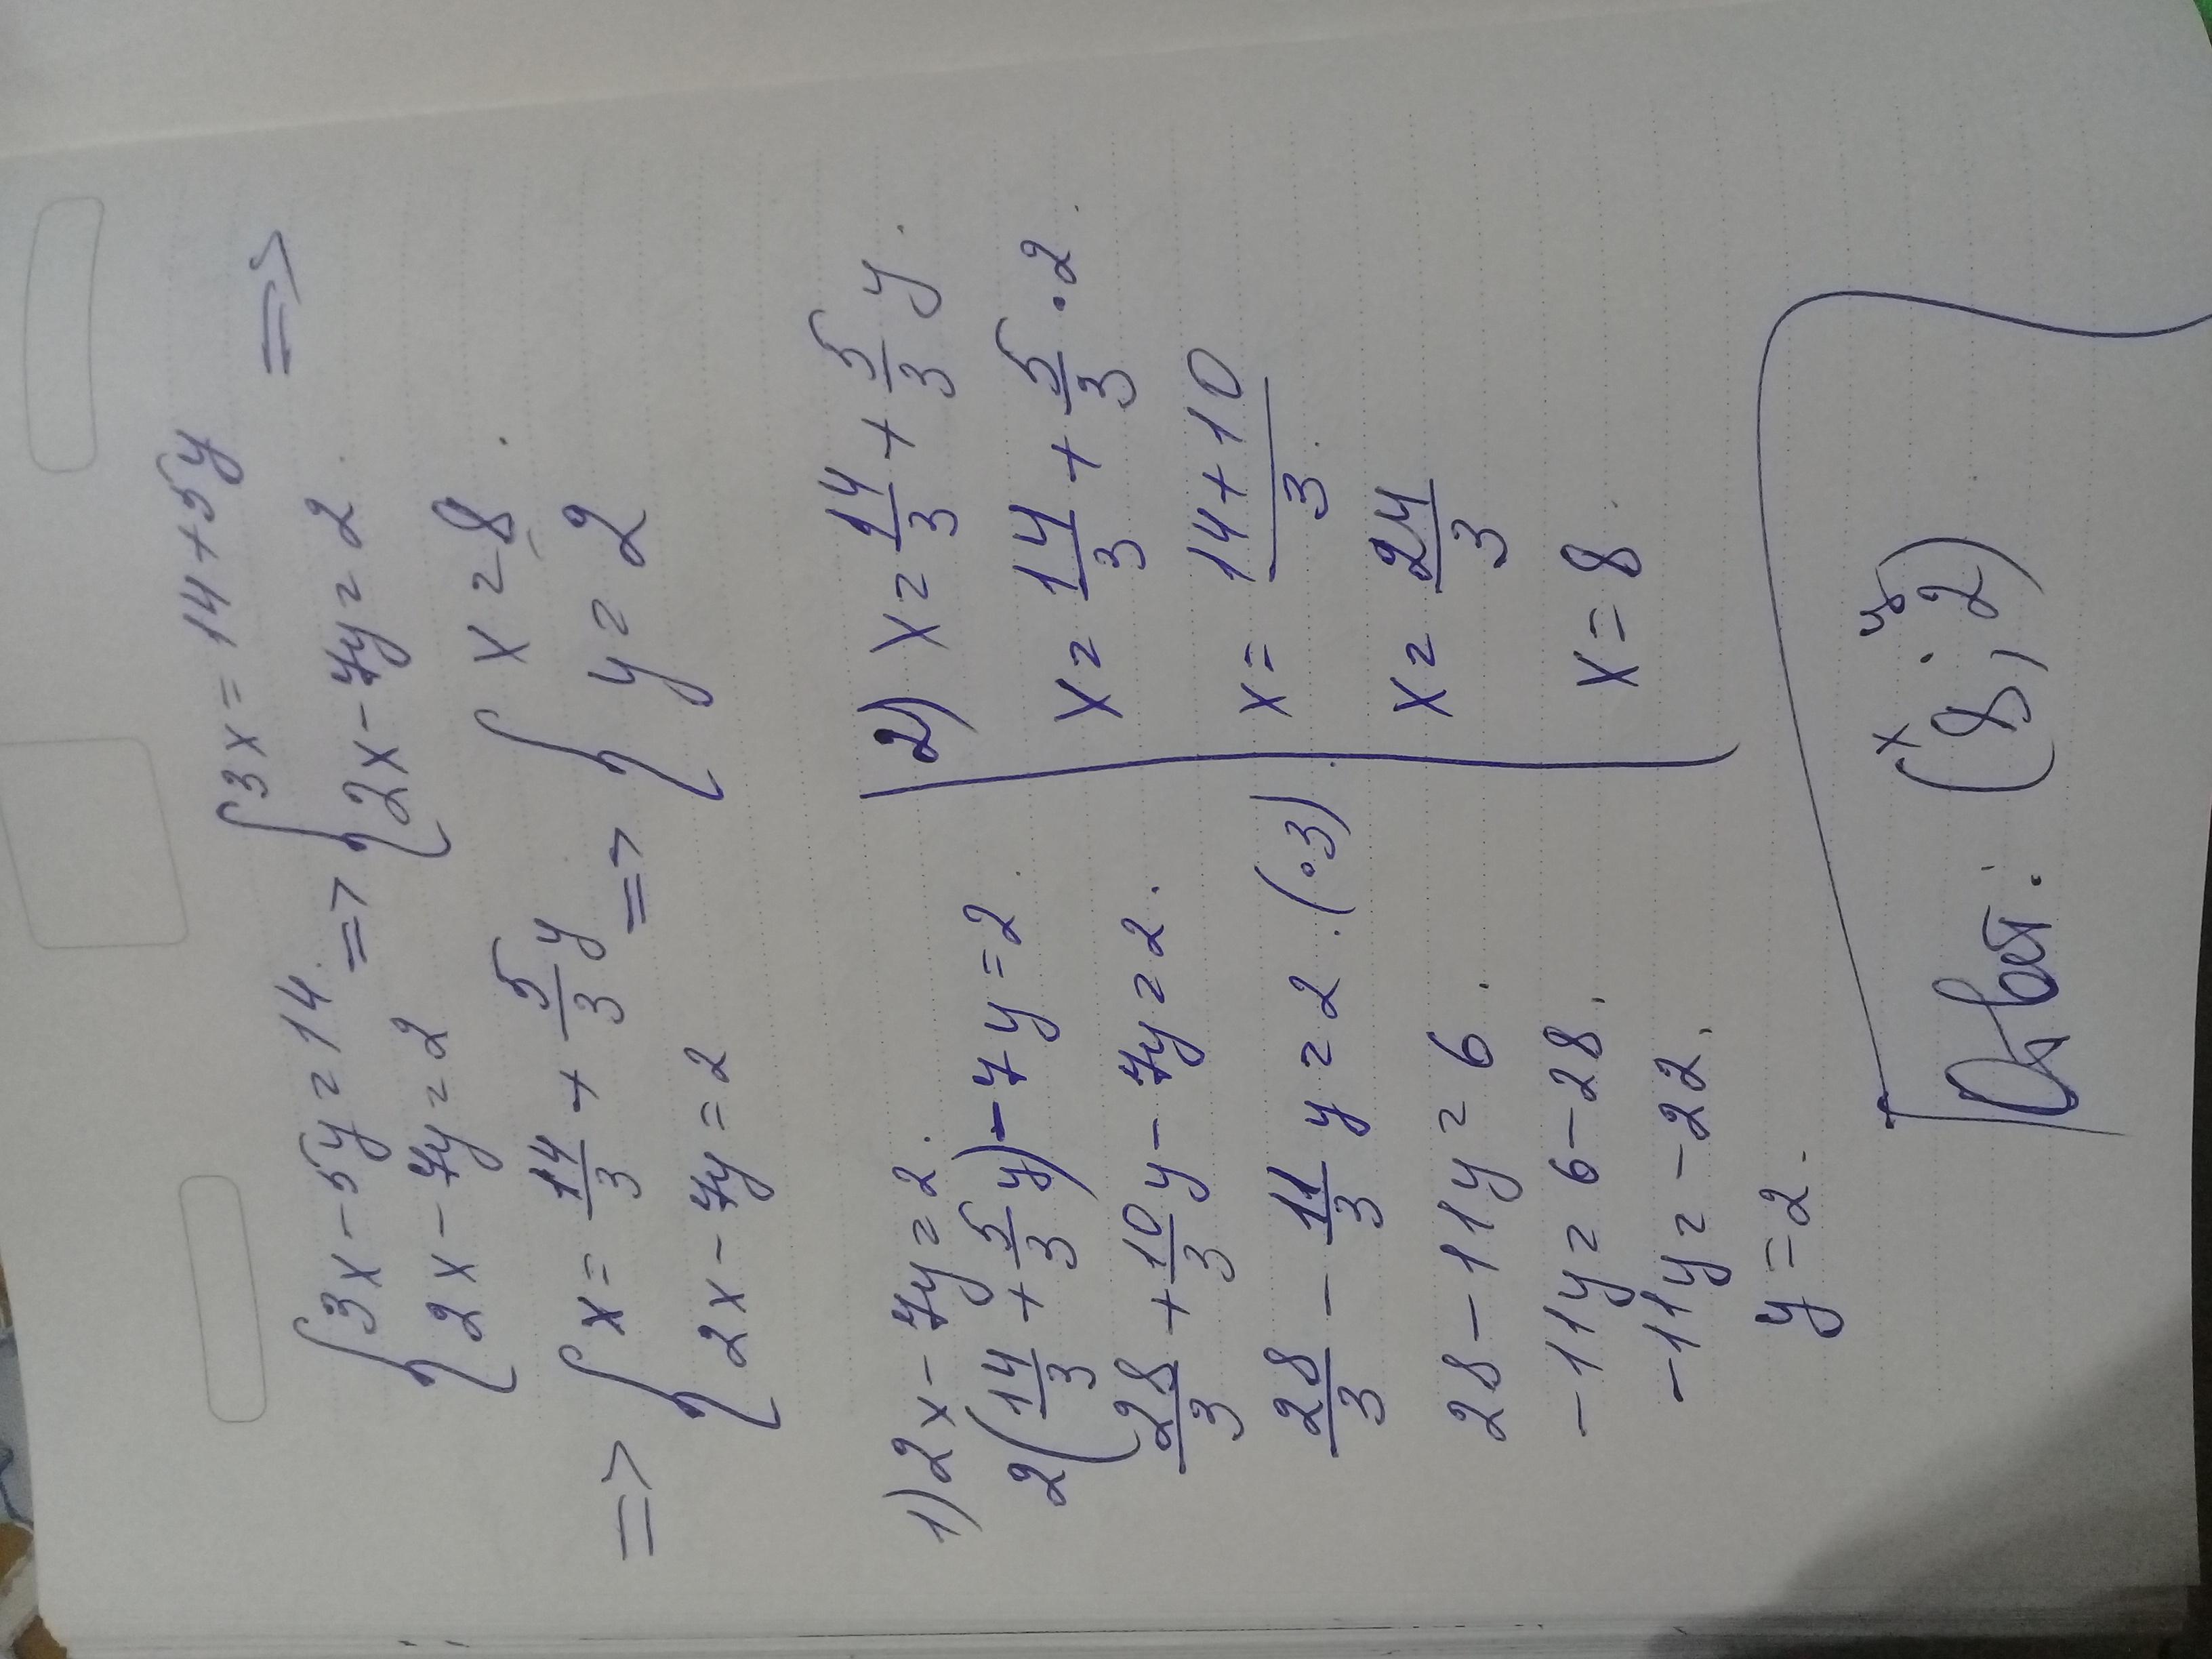 {3x-5y=14. => {3x=14+5y =>
{2x-7y=2 {2x-7y=2.
=> {x=14/3+5/3y => {x=8.
{2x-7y=2 {y=2
1) 2x-7y=2.
2(14/3+5/3y)-7y=2.
28/3+10/3y-7y=2.
28/3-11/3y=2. (·3)
28-11y=6.
-11y=6-28.
-11y=-22.
y=2.
2) x=14/3+5/3y.
x=14/3+5/3·2.
x=14+10/3.
x=24/3
x=8.
x y
Ответ: (8; 2)